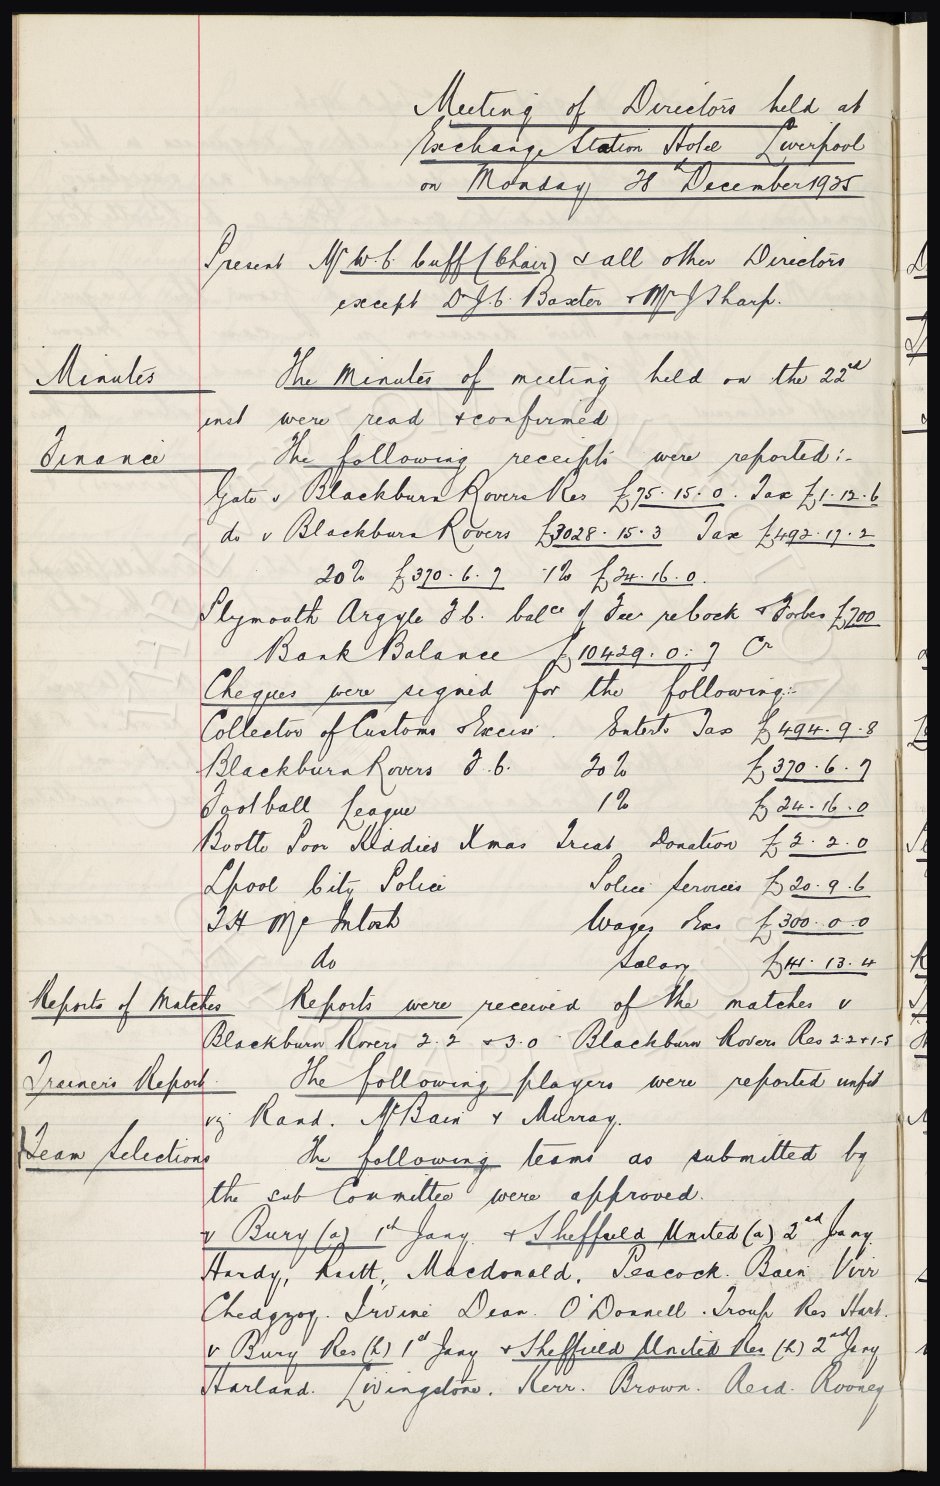 Meeting of Directors held at
Exchange Station Hotel Liverpool
on Monday 28th December 1925
Present Mr W.C. Cuff (Chair) & all other Directors
except Dr J.C. Baxter & Mr J Sharp.
Minutes The Minutes of meeting held on the 22nd
inst were read & confirmed
Finance The following receipts were reported:-
Gate v Blackburn Rovers Res £75.15.0. Tax £1.12.6
do v Blackburn Rovers £3028.15.3 Tax £492.17.2
20% £370.6.7 1% £24.16.0.
Plymouth Argyle F.C. balce of Fee re Cock & Forbes £700
Bank Balance £10429.0.7 Cr
Cheques were signed for the following:-
Collector of Customs & Excise. Entert. Tax £494.9.8
Blackburn Rovers F.C. 20% £370.6.7
Football League 1% £24.16.0
Bootle Poor Kiddies Xmas Treat Donation £2.2.0
Lpool City Police Police Services £20.9.6
T H McIntosh Wages Exs £300.0.0
do Salary £41.13.4
Reports of Matches Reports were received of the matches v
Blackburn Rovers 2.2 & 3.0 Blackburn Rovers Res 2.2 & 1-5
Trainer's Report The following players were reported unfit
viz Rand. McBain & Murray.
Team Selections The following teams as submitted by
the sub Committee were approved.
v Bury (a) 1st Jany. & Sheffield United (a) 2nd Jany.
Hardy, Raitt, Macdonald, Peacock. Bain Virr
Chedgzoy. Irvine Dean. O'Donnell. Troup Res Hart.
v Bury Res (h) 1st Jany & Sheffield United Res (h) 2nd Jany
Harland. Livingstone. Kerr. Brown. Reid. Rooney